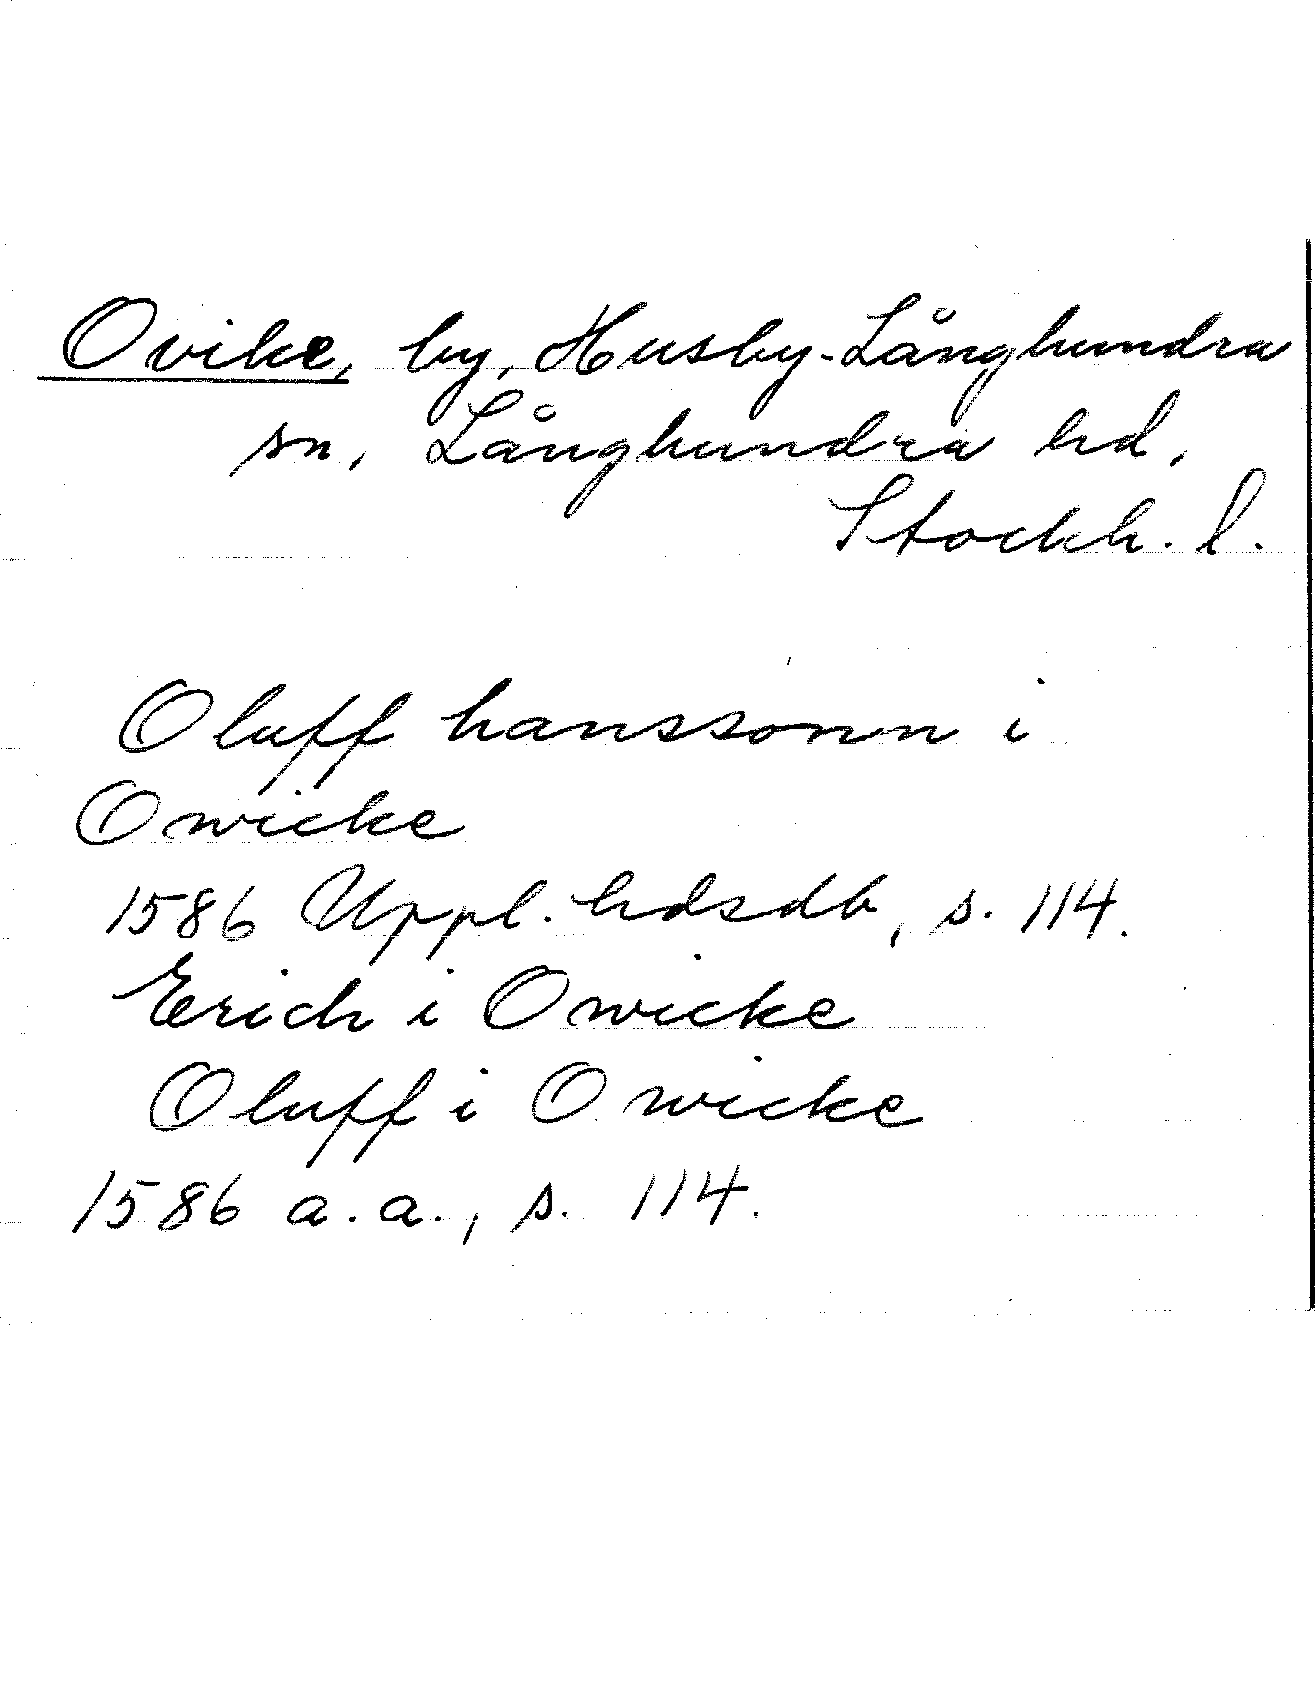 Ovike, by, Husby-Långhundra
sn, Långhundra hd,
Stockh. l.
Oluff hanssonn i
Owicke
1586 Uppl. hdsdb, s. 114.
Erich i Owicke
Oluff i Owicke
1586 a.a., s. 114.